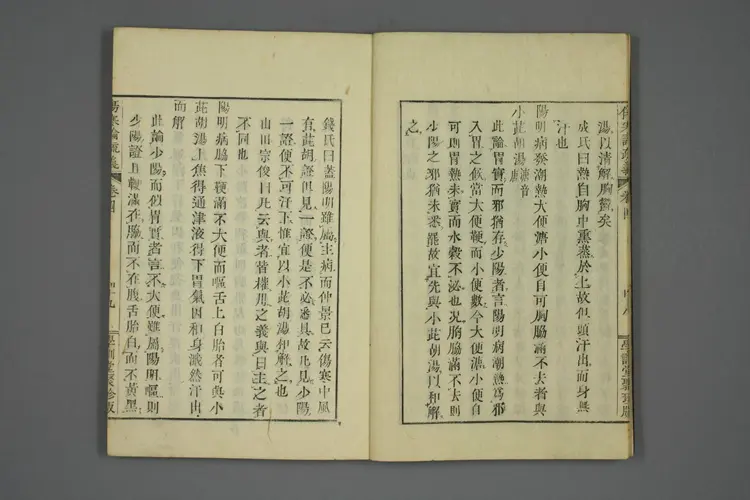 湯以清解胸鬱矣
成氏曰熱自胸中熏蒸於上故但頭汗出而身無
汗也
陽明病發潮熱大便溏小便自可胸脇滿不去者與
小茈胡湯溏音
此論胃實而邪猶存少陽者言陽明病潮熱爲邪
入胃之候當大便鞕而小便數今大便溏小便自
可則胃熱未實而水穀不泌也況胸脇滿不去則
少陽之邪猶未悉罷故宜先與小茈胡湯以和解
之
錢氏曰蓋陽明雖屬主病而仲景已云傷寒中風
有茈胡證但見一證便是不必悉具故凡見少陽
一證便不可汗下惟宜以小茈胡湯和解之也
山田宗俊曰凡云與者皆權用之義與曰主之者
不同也
陽明病脇下鞕滿不大便而嘔舌上白胎者可與小
茈胡湯上焦得通津液得下胃氣因和身濈然汗出
而解
此論少陽而似胃實者言不大便雖屬陽明嘔則
少陽證且鞕滿在脇而不在腹舌胎白而不黃黑
傷寒論疏義 卷四 四十九 學訓堂聚珍版